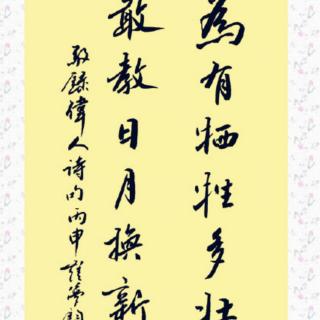 為有牺牲多壮
敢教日月換新
敬錄偉人詩句丙申夢